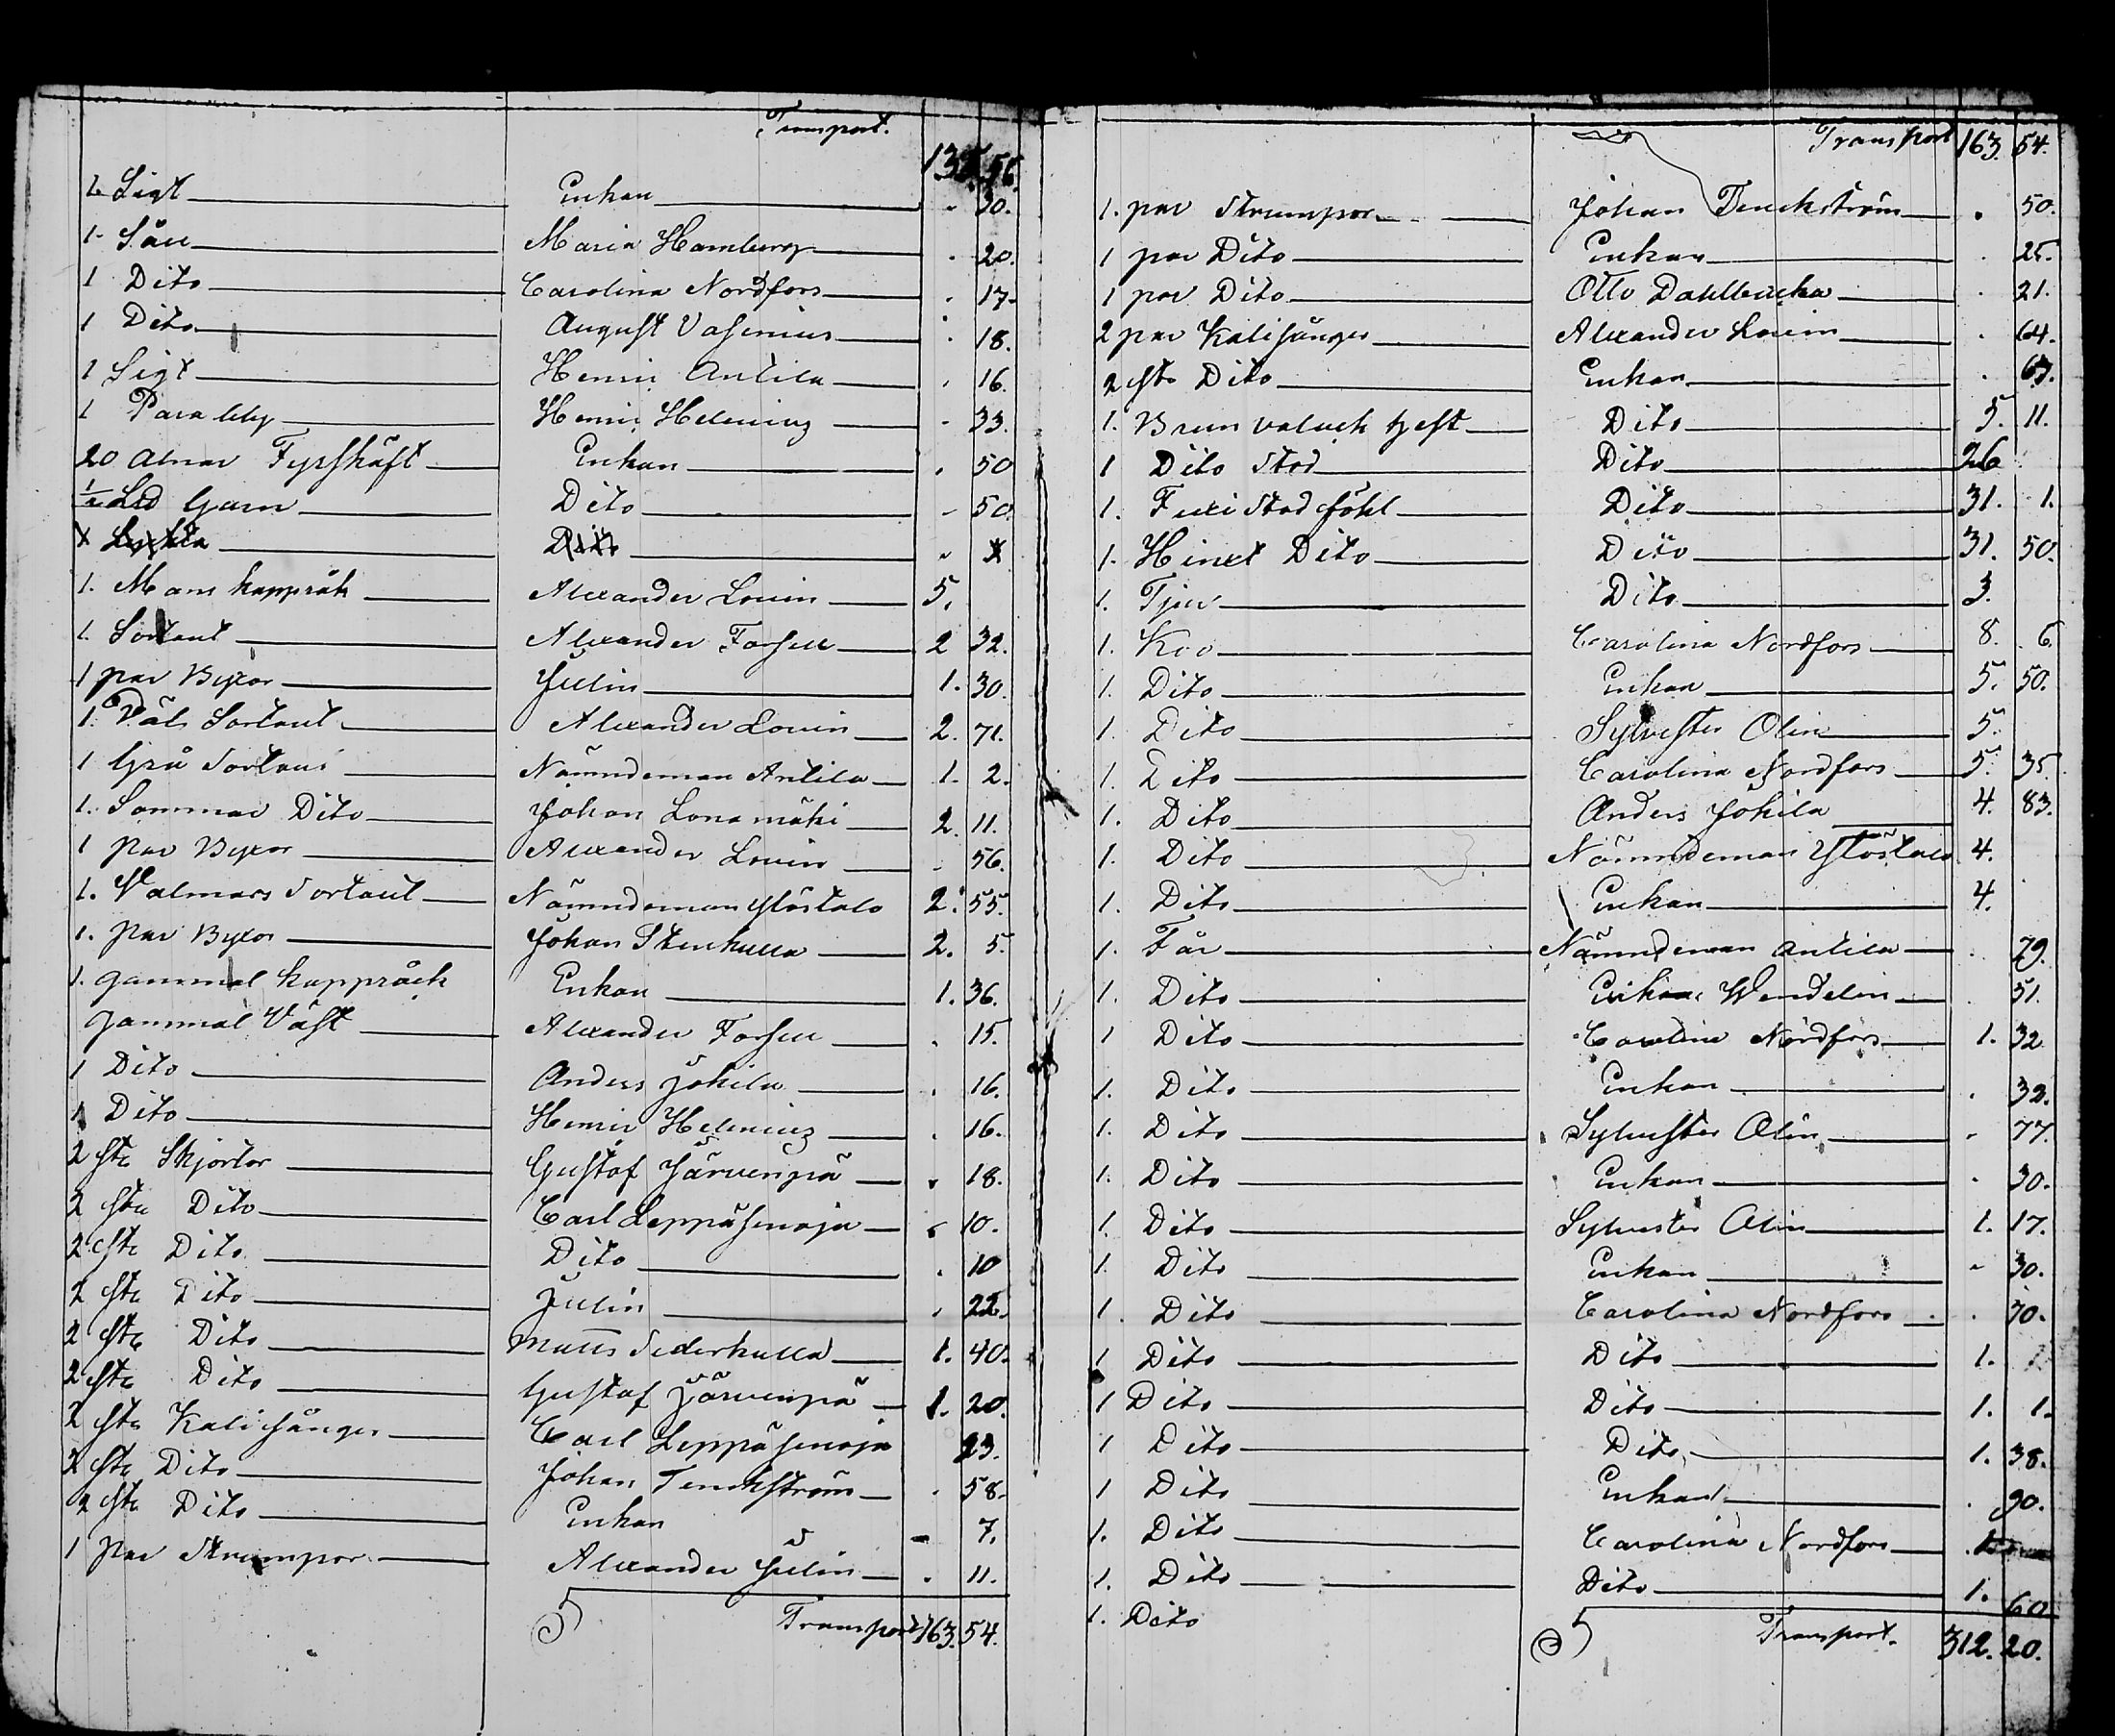 Transport.
13 56.
1 Sigt Enkan " 30.
1. Såll Maria Hamberg . 20.
1 Dito Carolina Nordfors . 17.
1 Dito August Vasenius . 18.
1 Sigt Henric Antila . 16.
1 Para Henric Helenius . 33.
20 alnar Fyrskäft Enkan . 50
½ Lld Garn Dito - 50.
1. Mans kappråk Alexander Lovin 5.
1. Sortout Alexander Forsell 2 32.
1 par Byxor Julin 1. 30.
1. Sortout Alexander Lovin 2. 71.
1 Grå Sortout Nämndeman Antila 1. 2.
1. Sommar Dito Johan Lonamäki 2. 11.
1 par Byxor Alexander Lovin - 56.
1. Valmars Sortout Nämndeman Ylöstalo 2. 55.
1. par Byxor Johan Stenkulla 2. 5.
1. gammal kappråck Enkan 1. 36.
gammal Väst Alexander Forsell . 15.
1 Dito Anders Johila . 16.
1 Dito Henric Helenius . 16.
2 stk Skjortor Gustaf Järvenpä . 18.
2 stk Dito Carl Leppäsenoja . 10.
2 stk Dito Dito . 10
2 stk Dito Julin . 22.
2 stk Dito Matts Sederkulla 1. 40.
2 stk Dito Gustaf Järvenpä 1. 20.
2 stk Kalisånger Carl Leppäsenoja 23.
2 stk Dito Johan Tenckström . 58.
2 stk Dito Enkan - 7.
1 par Strumpor Alexander Julin . 11.
Transport 163. 54.
Transport 163. 54.
1. par Strumpor Johan Tenckström . 50.
1 par Dito Enkan . 25.
1 par Dito Otto Dahlbacka . 21.
2 par Kalisånger Alexander Lovin . 64.
2 stk Dito Enkan . 67.
1. Brun valack hest Dito 5. 11.
1 Dito Stod Dito 26
1. Stod föhl Dito 31. 1.
1. Hinxt Dito Dito 31. 50.
1. Tjur Dito 3.
1. Koo Carolina Nordfors 8. 6.
1. Dito Enkan 5. 50.
1. Dito Sylvester Olin 5.
1. Dito Carolina Nordfors 5. 35.
1. Dito Anders Johila 4. 83.
1. Dito Nämndeman Ylöstalo 4.
1. Dito Enkan 4.
1. Får Nämndeman Antila . 79.
1. Dito Enkan Wendelin . 51.
1 Dito Carolina Nordfors 1. 32
1. Dito Enkan . 32.
1. Dito Sylvester Olin - 77.
1. Dito Enkan . 30.
1. Dito Sylvester Olin 1. 17.
1. Dito Enkan - 30.
1. Dito Carolina Nordfors . 70.
1 Dito Dito 1.
1 Dito Dito 1. 1.
1 Dito Dito 1. 38.
1 Dito Enkan . 90.
1. Dito Carolina Nordfors
1. Dito Dito 1. 60
1. Dito
Transport. 312. 20.